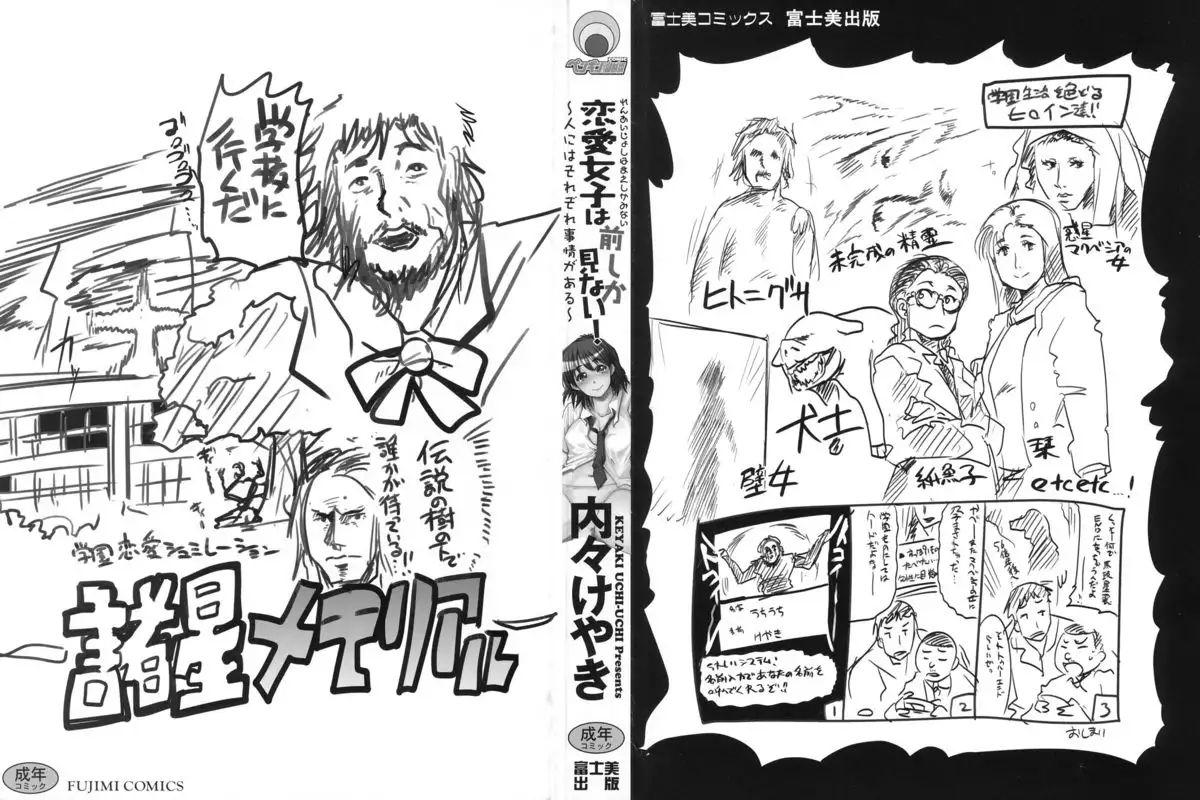 富士美コミックス 富士美出版
学園生活を彩どる
ヒロイン達!!
惑星
マクベシアの
女
未完成の精霊
ヒトニグサ
犬士
壁女
紙魚子
栞
etcetc…!
スゴイ
スゴイ
名字 うちうち
名前 けやき
うれしいシステム!
名前入力であなたの名前を
呼んでくれるぞ!!
1
2
3
おしまい
れんあいじょしはまえしかみない
恋愛女子は前しか見ない!
〜人にはそれぞれ事情がある〜
内々けやき
KEYAKI UCHI-UCHI Presents
成年
コミック
富士美
出版
学校に
行くだ
ゴロゴロゴロ…
カッ
伝説の樹の下で
誰かが待ている…!!
学園恋愛シュミレーション
諸星メモリアル
成年
コミック
FUJIMI COMICS